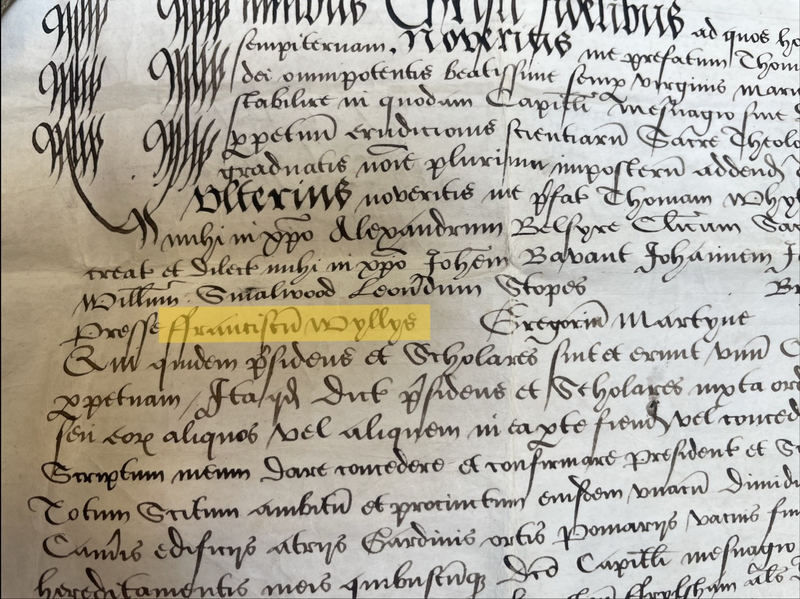 omnibus Christi fidelibus ad quos
sempiternam. Noveritis me prefatum Thom
dei omnipotentis beatissime semp virginis mari
stabilire in quodam Capitli mesuagio sine
ppetuu erudicionis scientiaru Sacre Theolo
graduatis noie plurisuu imposteru addend
Ulterius noveritis me pfat Thomam Whyt
mihi in xpo Alexandrum Belsyre Clicum Sac
creat et dilect mihi in xpo Johem Bavant Johannem
Willmm Smalwood Leondum Stopes Br
Presse ffranciscu Wyllys Gregoriu Martyne
Qui quidem psidens et Scholares sint et erunt unu C
ppetuam Ita qd dict psidens et Scholares iuxta ord
seu eor aliquos vel aliquem in ea pte fiend vel conced
Scriptum meum dare concedere et confirmare President et Sc
Totum Scitum ambitu et procinctum eiusdem unacu dimid
Cameris edificijs atrijs Gardinis ortis Pomarijs vacuis
hereditamentis meis quibuscuq dco Capitli mesuagio
als